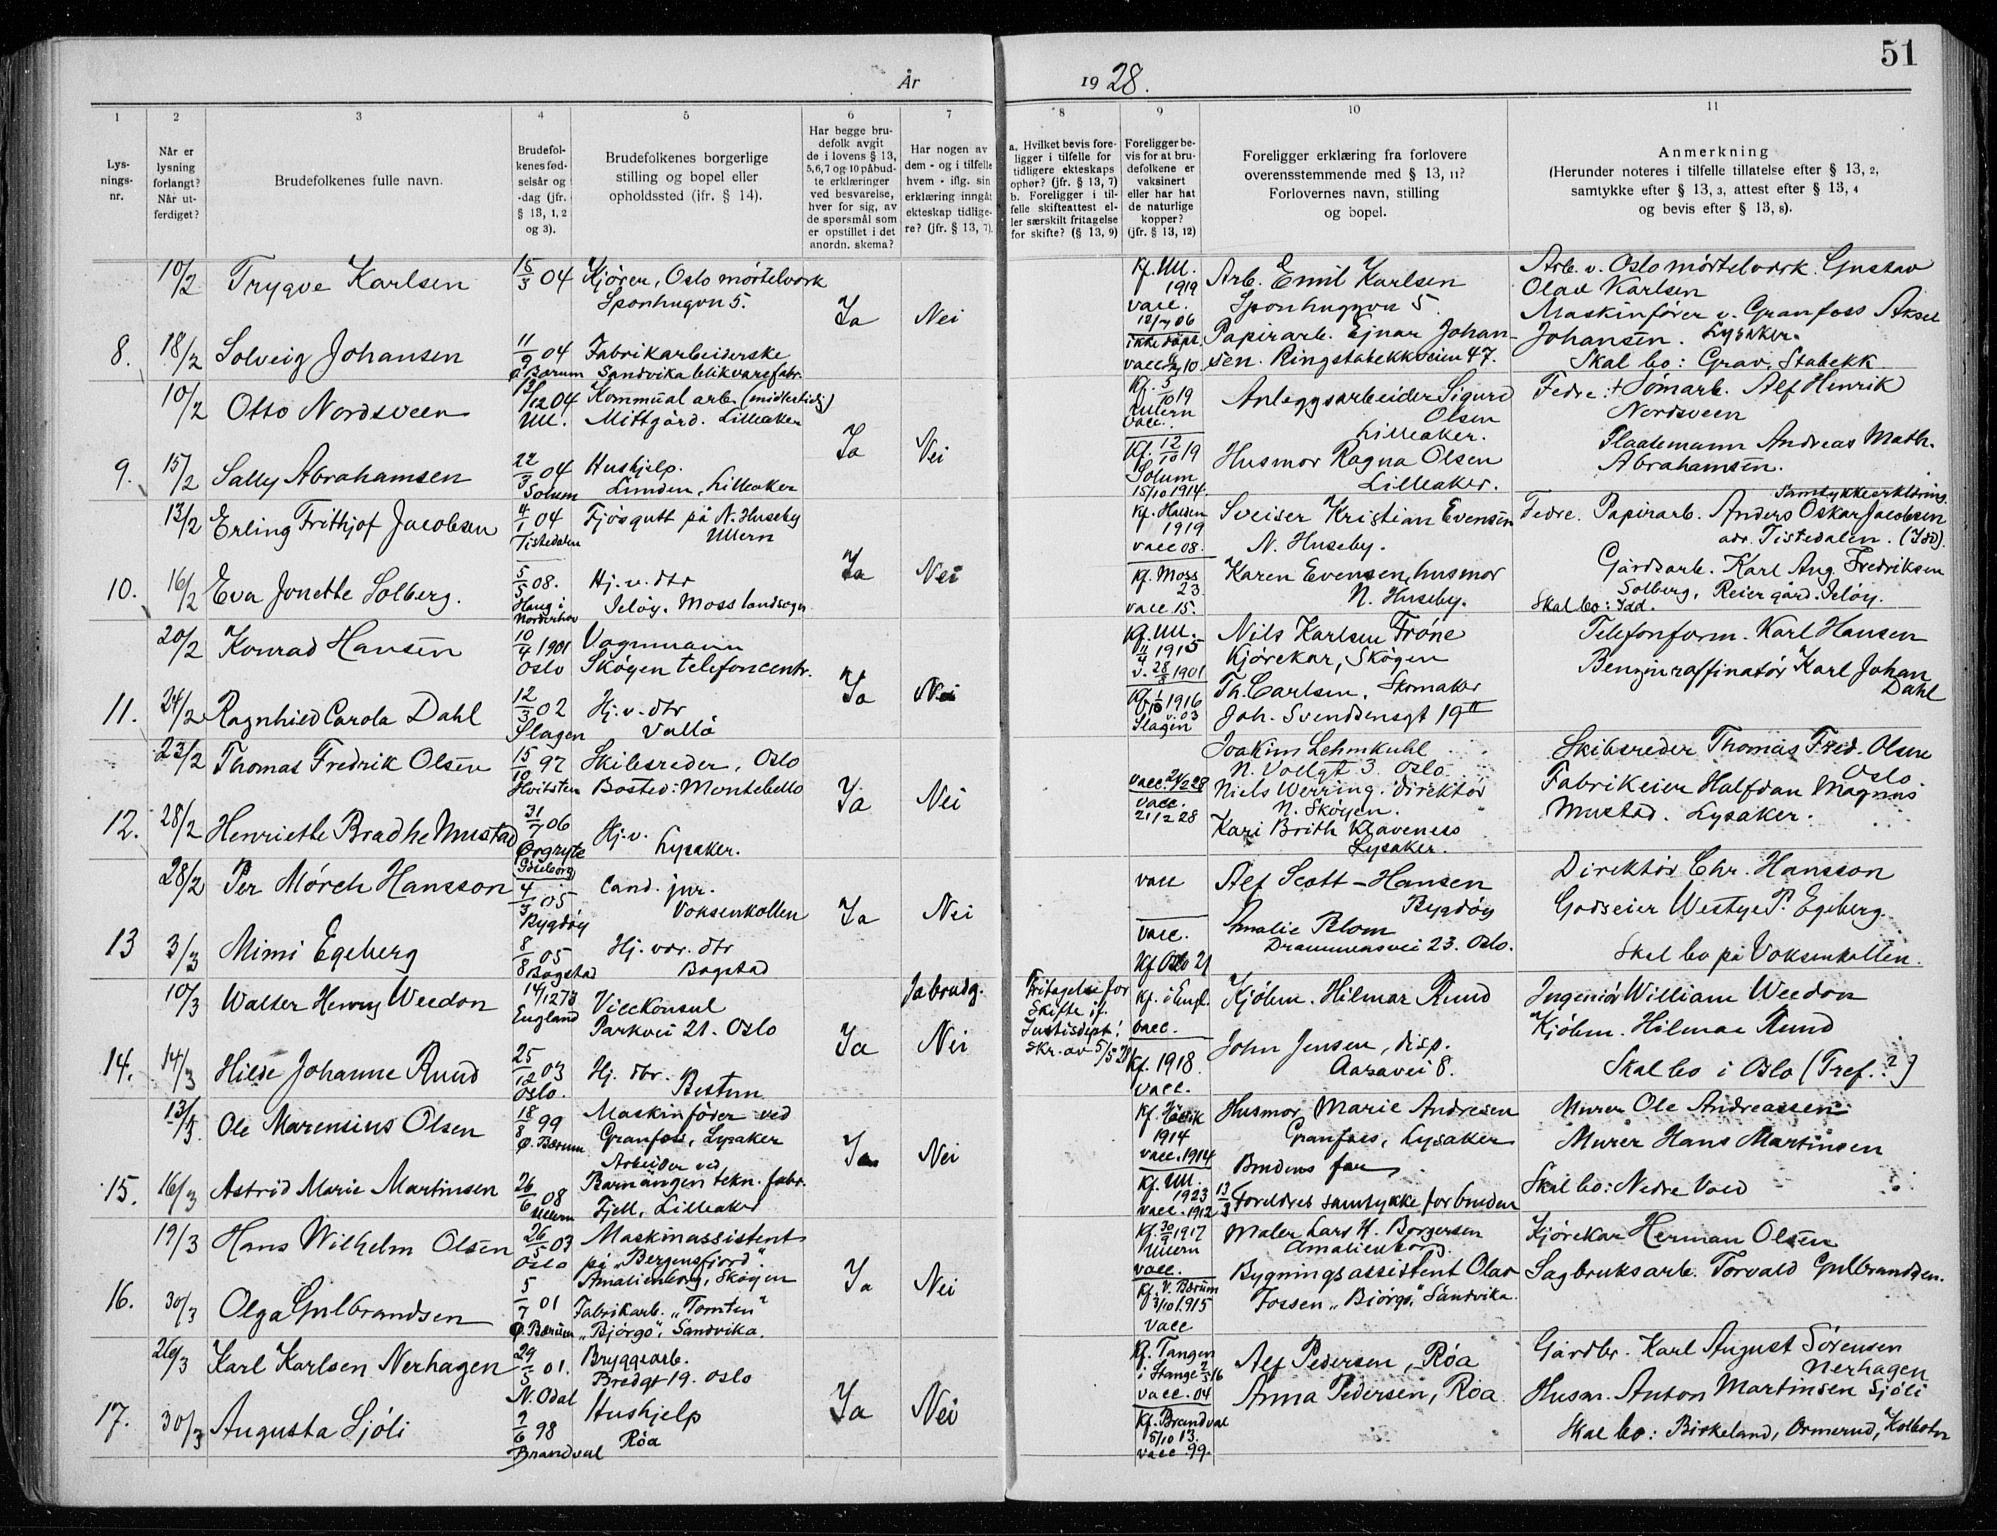 51
År 1928.
1 2 3 4 5 6 7 8 9 10 11
Lys-
nings-
nr.
Når er
lysning
forlangt?
Når ut-
ferdiget?
Brudefolkenes fulle navn.
Brudefol-
kenes fød-
selsår og
-dag (jfr.
§ 13, 1, 2
og 3).
Brudefolkenes borgerlige
stilling og bopel eller
opholdssted (jfr. § 14).
Har begge bru-
defolk avgit
de i lovens § 13,
5,6,7 og 10 påbud-
te erklæringer
ved besvarelse,
hver for sig, av
de spørsmål som
er opstillet i det
anordn. skema?
Har nogen av
dem - og i tilfelle
hvem - iflg. sin
erklæring inngåt
ekteskap tidlige-
re? (jfr. § 13, 7).
a. Hvilket bevis fore-
ligger i tilfelle for
tidligere ekteskaps
ophør? (jfr. § 13, 7)
b. Foreligger i til-
felle skifteattest el-
ler særskilt fritagelse
for skifte? (§ 13, 9)
Foreligger be-
vis for at bru-
defolkene er
vaksinert
eller har hat
de naturlige
kopper?
(jfr. § 13, 12)
Foreligger erklæring fra forlovere
overensstemmende med § 13, 11?
Forlovernes navn, stilling
og bopel.
Anmerkning
(Herunder noteres i tilfelle tillatelse efter § 13, 2,
samtykke efter § 13, 3, attest efter § 13, 4
og bevis efter § 13, 8).
10/2 Trygve Karlsen
15/3 04
Kjører, Oslo mørtelverk
Sponhugvn 5.
Ja Nei
Kf. Ull.
1919
vacc.
Arb. Emil Karlsen
Sponhugvn 5
Arb. v. Oslo mørtelverk Gustav
Olav Karlsen
8. 18/2 Solveig Johansen
11/9 04
Ø. Bærum
Fabrikarbeiderske
Sandvika blikvarefabr.
12/7 06
ikke døpt
Papirarb. Ejnar Johan-
sen. Ringstabekkveien 47.
Maskinfører v. Granfoss Aksel
Johansen. Lysaker.
Skal bo: Grav, Stabekk
10/2 Otto Nordsveen
12/12 04
Ull.
Kommual arb. (midlertidig)
Mittgård. Lilleaker
Ja Nei
Kf. 5/10 19
Ullern
vacc.
Anleggsarbeider Sigurd
Olsen
Lilleaker.
Fedre: + Tømarb. Alf Henrik
Nordsveen
9. 15/2 Sally Abrahamsen
22/3 04
Solum
Hushjelp.
Lunden, Lilleaker
Kf. 12/10 19
Solum
15/10 1914.
Husmor Ragna Olsen
Lilleaker.
Flaatemann Andreas Math.
Abrahamsen.
13/2 Erling Frithjof Jacobsen
4/1 04
Tistedalen
Fjøsgutt på N. Huseby
Ullern
Ja Nei
Kf. Halden
1919
vacc 08.
Sveiser Kristian Evensen
N. Huseby.
Samtykkeerklæring.
Fedre. Papirarb. Anders Oskar Jacobsen
adr. Tistedalen. (Idd).
10. 16/2 Eva Jonette Solberg.
5/5 08.
Haug i
Norderhov
Hj. v. dtr
Jeløy. Moss landsogn
Kf. Moss
23
vacc 15.
Karen Evensen, husmor
N. Huseby.
Gårdsarb. Karl Aug. Fredriksen
Solberg, Reier gård. Jeløy.
Skal bo: Idd.
20/2 Konrad Hansen
10/4 1901
Oslo
Vognmann
Skøyen telefoncentr.
Ja Nei
Kf. Ull.
11/4 1915
v. 28/8 1901
Nils Karlsen Frøne
Kjørekar, Skøyen
Telefonform. Karl Hansen
11. 24/2 Ragnhild Carola Dahl
12/3 02
Slagen
Hj. v. dtr
Vallø
Kf. 1/10 1916
v. 03
Slagen
Th. Carlsen, Skomaker
Joh. Svendsensgt 19 II
Benzinraffinatør Karl Johan
Dahl
23/2 Thomas Fredrik Olsen
15/10 97
Hvitsten
Skibsreder, Oslo
Bosted: Montebello
Ja Nei
vacc. 21/2 28
Joakim Lehmkuhl
N. Vollgt 3. Oslo
Niels Werring. Direktør
N. Skøyen.
Skibsreder Thomas Fred. Olsen
Oslo
12. 28/2 Henriette Bradhe Mustad
31/7 06
Ørgryte
Göteborg
Hj. v.
Lysaker.
vacc.
21/2 28
Kari Brith Klaveness
Lysaker.
Fabrikeier Halfdan Magnus
Mustad. Lysaker.
28/2 Per Mørch Hansson
4/3 05
Bygdøy
Cand. jur.
Voksenkollen
Ja Nei
vacc
Alf Scott-Hansen
Bygdøy
Direktør Chr. Hansson
13 3/3 Mimi Egeberg
8/8 05
Bogstad
Hj. vær. dtr
Bogstad
vacc.
Kf Oslo 21
Amalie Blom
Drammensvei 23. Oslo.
Godseier Westye P. Egeberg.
Skal bo på Voksenkollen.
10/3 Walter Henry Weedon
14/12 73
England
Vicekonsul
Parkvei 21. Oslo
Ja brudg.
Fritagelse for
Skifte if.
Justisdept.'
Skr. av 5/5 28
Kf. i Engl.
vacc.
Kjøbm. Hilmar Ruud
Ingeniør William Weedon
14. 14/3 Hilde Johanne Ruud
25/12 03
Oslo.
Hj. dtr.
Bestum
Ja Nei
Kf. 1918
vacc.
John Jensen, disp.
Aaravei 8.
Kjøbm. Hilmar Ruud
Skal bo i Oslo (Tref.?)
13/3 Ole Marensius Olsen
18/8 99
Ø. Bærum
Maskinfører ved
Granfoss, Lysaker
Ja Nei
Kf. Høvik
1914
vacc. 1914
Husmor Marie Andresen
Granfoss, Lysaker
Murer Ole Andreassen
15. 16/3 Astrid Marie Martinsen
26/6 08
Ullern
Arbeider ved
Barnängen tekn. fabr.
Fjell, Lilleaker
Kf. Ull.
1923
vacc. 1912
Brudens far
13/3 Foreldres samtykke for bruden
Murer Hans Martinsen
Skal bo: Nedre Vold
19/3 Hans Wilhelm Olsen
26/5 03
Oslo
Maskinassistent
på „Bergensfjord".
Amalienborg, Skøyen
Ja Nei
Kf. 30/9 1917
Ullern
vacc.
Maler Lars H. Borgersen
Amalienborg.
Kjørekar Herman Olsen
16. 30/3 Olga Gulbrandsen
5/7 01
Ø. Bærum
Fabrikarb. „Tomten"
„Bjørgo", Sandvika.
Kf. V. Bærum
3/10 1915
vacc
Bygningsassistent Olav
Fossen „Bjørgo", Sandvika.
Sagbruksarb. Torvald Gulbrandsen.
26/3 Karl Karlsen Nerhagen
29/5 01.
N. Odal
Bryggearb.
Bredgt 19. Oslo
Ja Nei
Kf. Tangen
i Stange 2/5 16
vacc. 04
Alf Pedersen, Røa
Gårdbr. Karl August Sørensen
Nerhagen
17. 30/3 Augusta Sjöli
2/6 98
Brandval
Hushjelp
Røa
Kf. Brandval
5/10 13.
vacc 99.
Anna Pedersen, Røa
Husm. Anton Martinsen Sjöli
Skal bo: Birkeland, Ormerud, Kolbotn